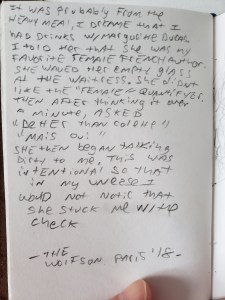 IT WAS PROBABLY FROM THE
HEAVY MEAL, I DREAMT THAT I
HAD DRINKS W/MARGUERITE DURAS
I TOLD HER THAT SHE WAS MY
FAVORITE FEMALE FRENCH AUTHOR.
SHE WAVED HER EMPTY GLASS
AT THE WAITRESS. SHE DIDN'T
LIKE THE "FEMALE" QUANTIFYER.
THEN AFTER THINKING IT OVER
A MINUTE, ASKED
"BETTER THAN COLETTE?"
"MAIS OUI"
SHE THEN BEGAN TALKING
DIRTY TO ME. THIS WAS
INTENTIONAL SO THAT
IN MY UNEASE I
WOULD NOT NOTIC THAT
SHE STUCK ME WITH
CHECK
- THE
PARIS '18 -